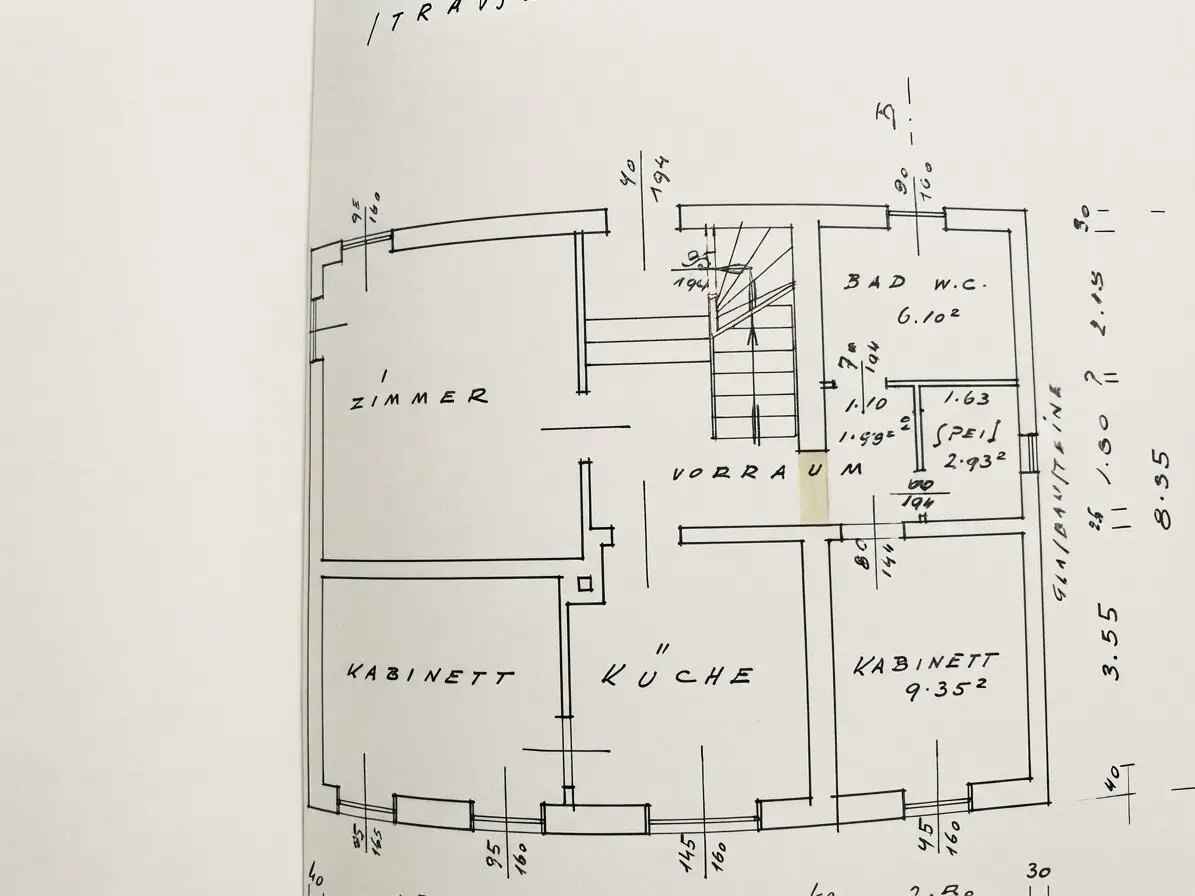 90
194
90
100
95
160
30
2.15
BAD W.C.
6.10²
194
194
1.10
1.63
ZIMMER
SPEIS
2.93²
1.80
8.35
VORRAUM
194
25
80
144
GLASBAUSTEINE
3.55
KABINETT
KÜCHE
KABINETT
9.35²
40
95
165
95
160
145
160
45
160
40
30